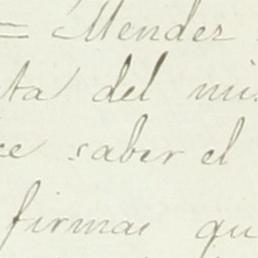 = Mendez
ta del mis
ce saber el
firmas qu